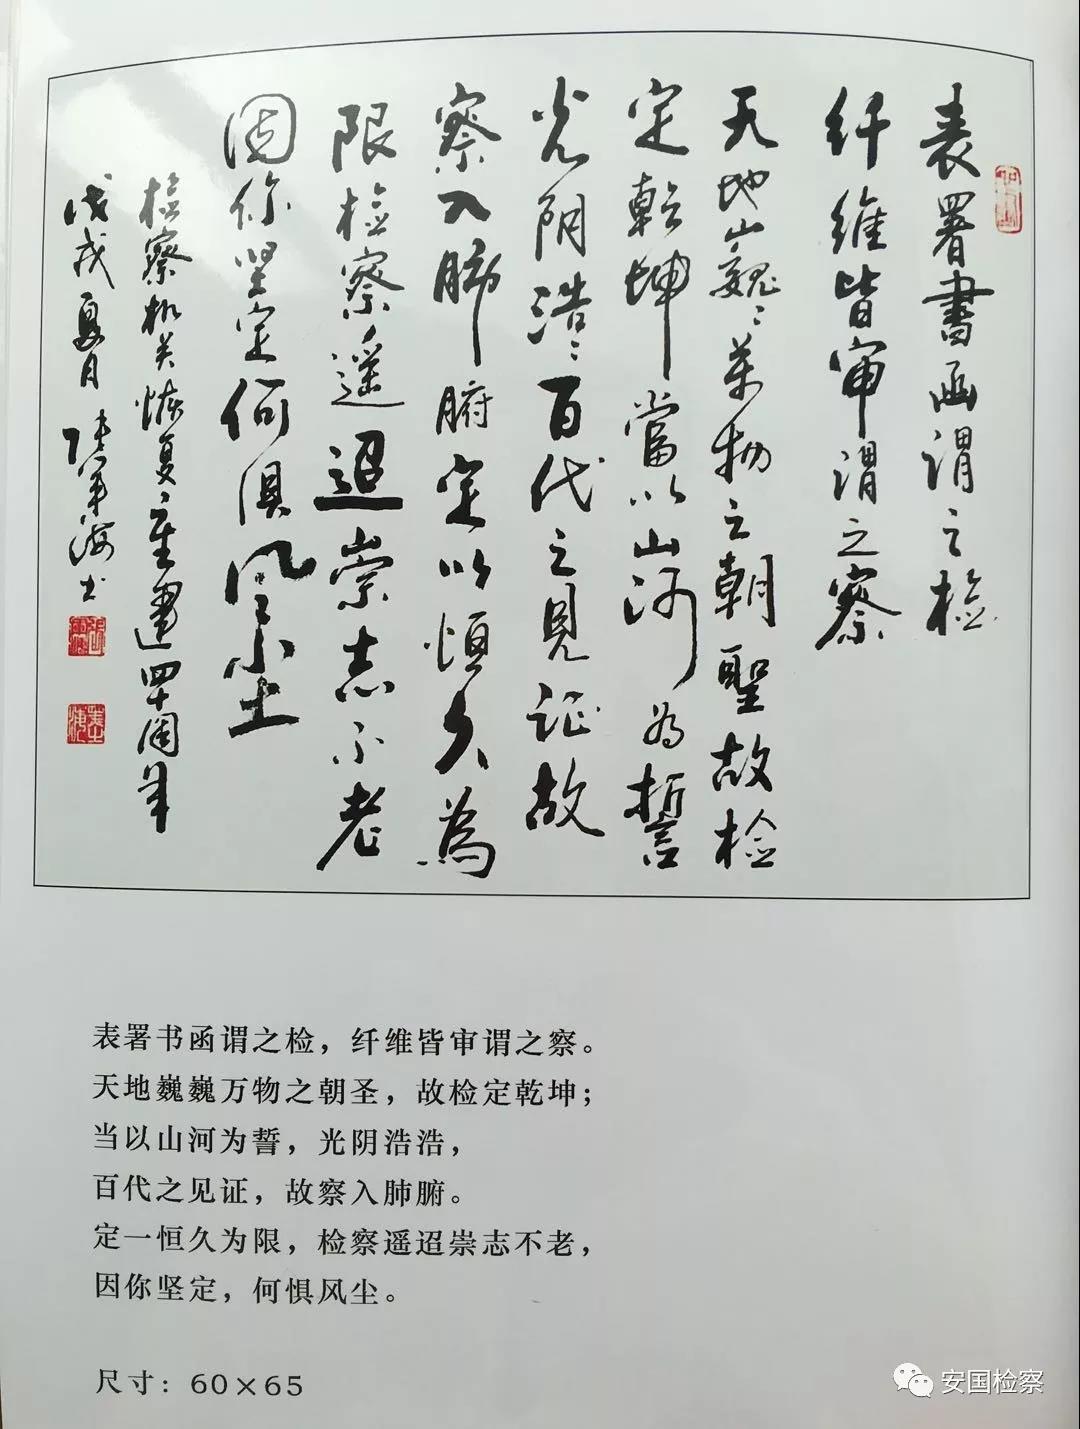 表署書函谓之检
纤维皆审谓之察
天地巍〻萬物之朝聖故检
定乾坤當以山河为誓
光阴浩〻百代之見证故
察入肺腑定以恒久為
限检察遥迢崇志不老
因你坚定何惧风尘
检察机关恢复重建四十周年
戊戌夏月 张军海书
表署书函谓之检，纤维皆审谓之察。
天地巍巍万物之朝圣，故检定乾坤；
当以山河为誓，光阴浩浩，
百代之见证，故察入肺腑。
定一恒久为限，检察遥迢崇志不老，
因你坚定，何惧风尘。
尺寸：60×65
安国检察